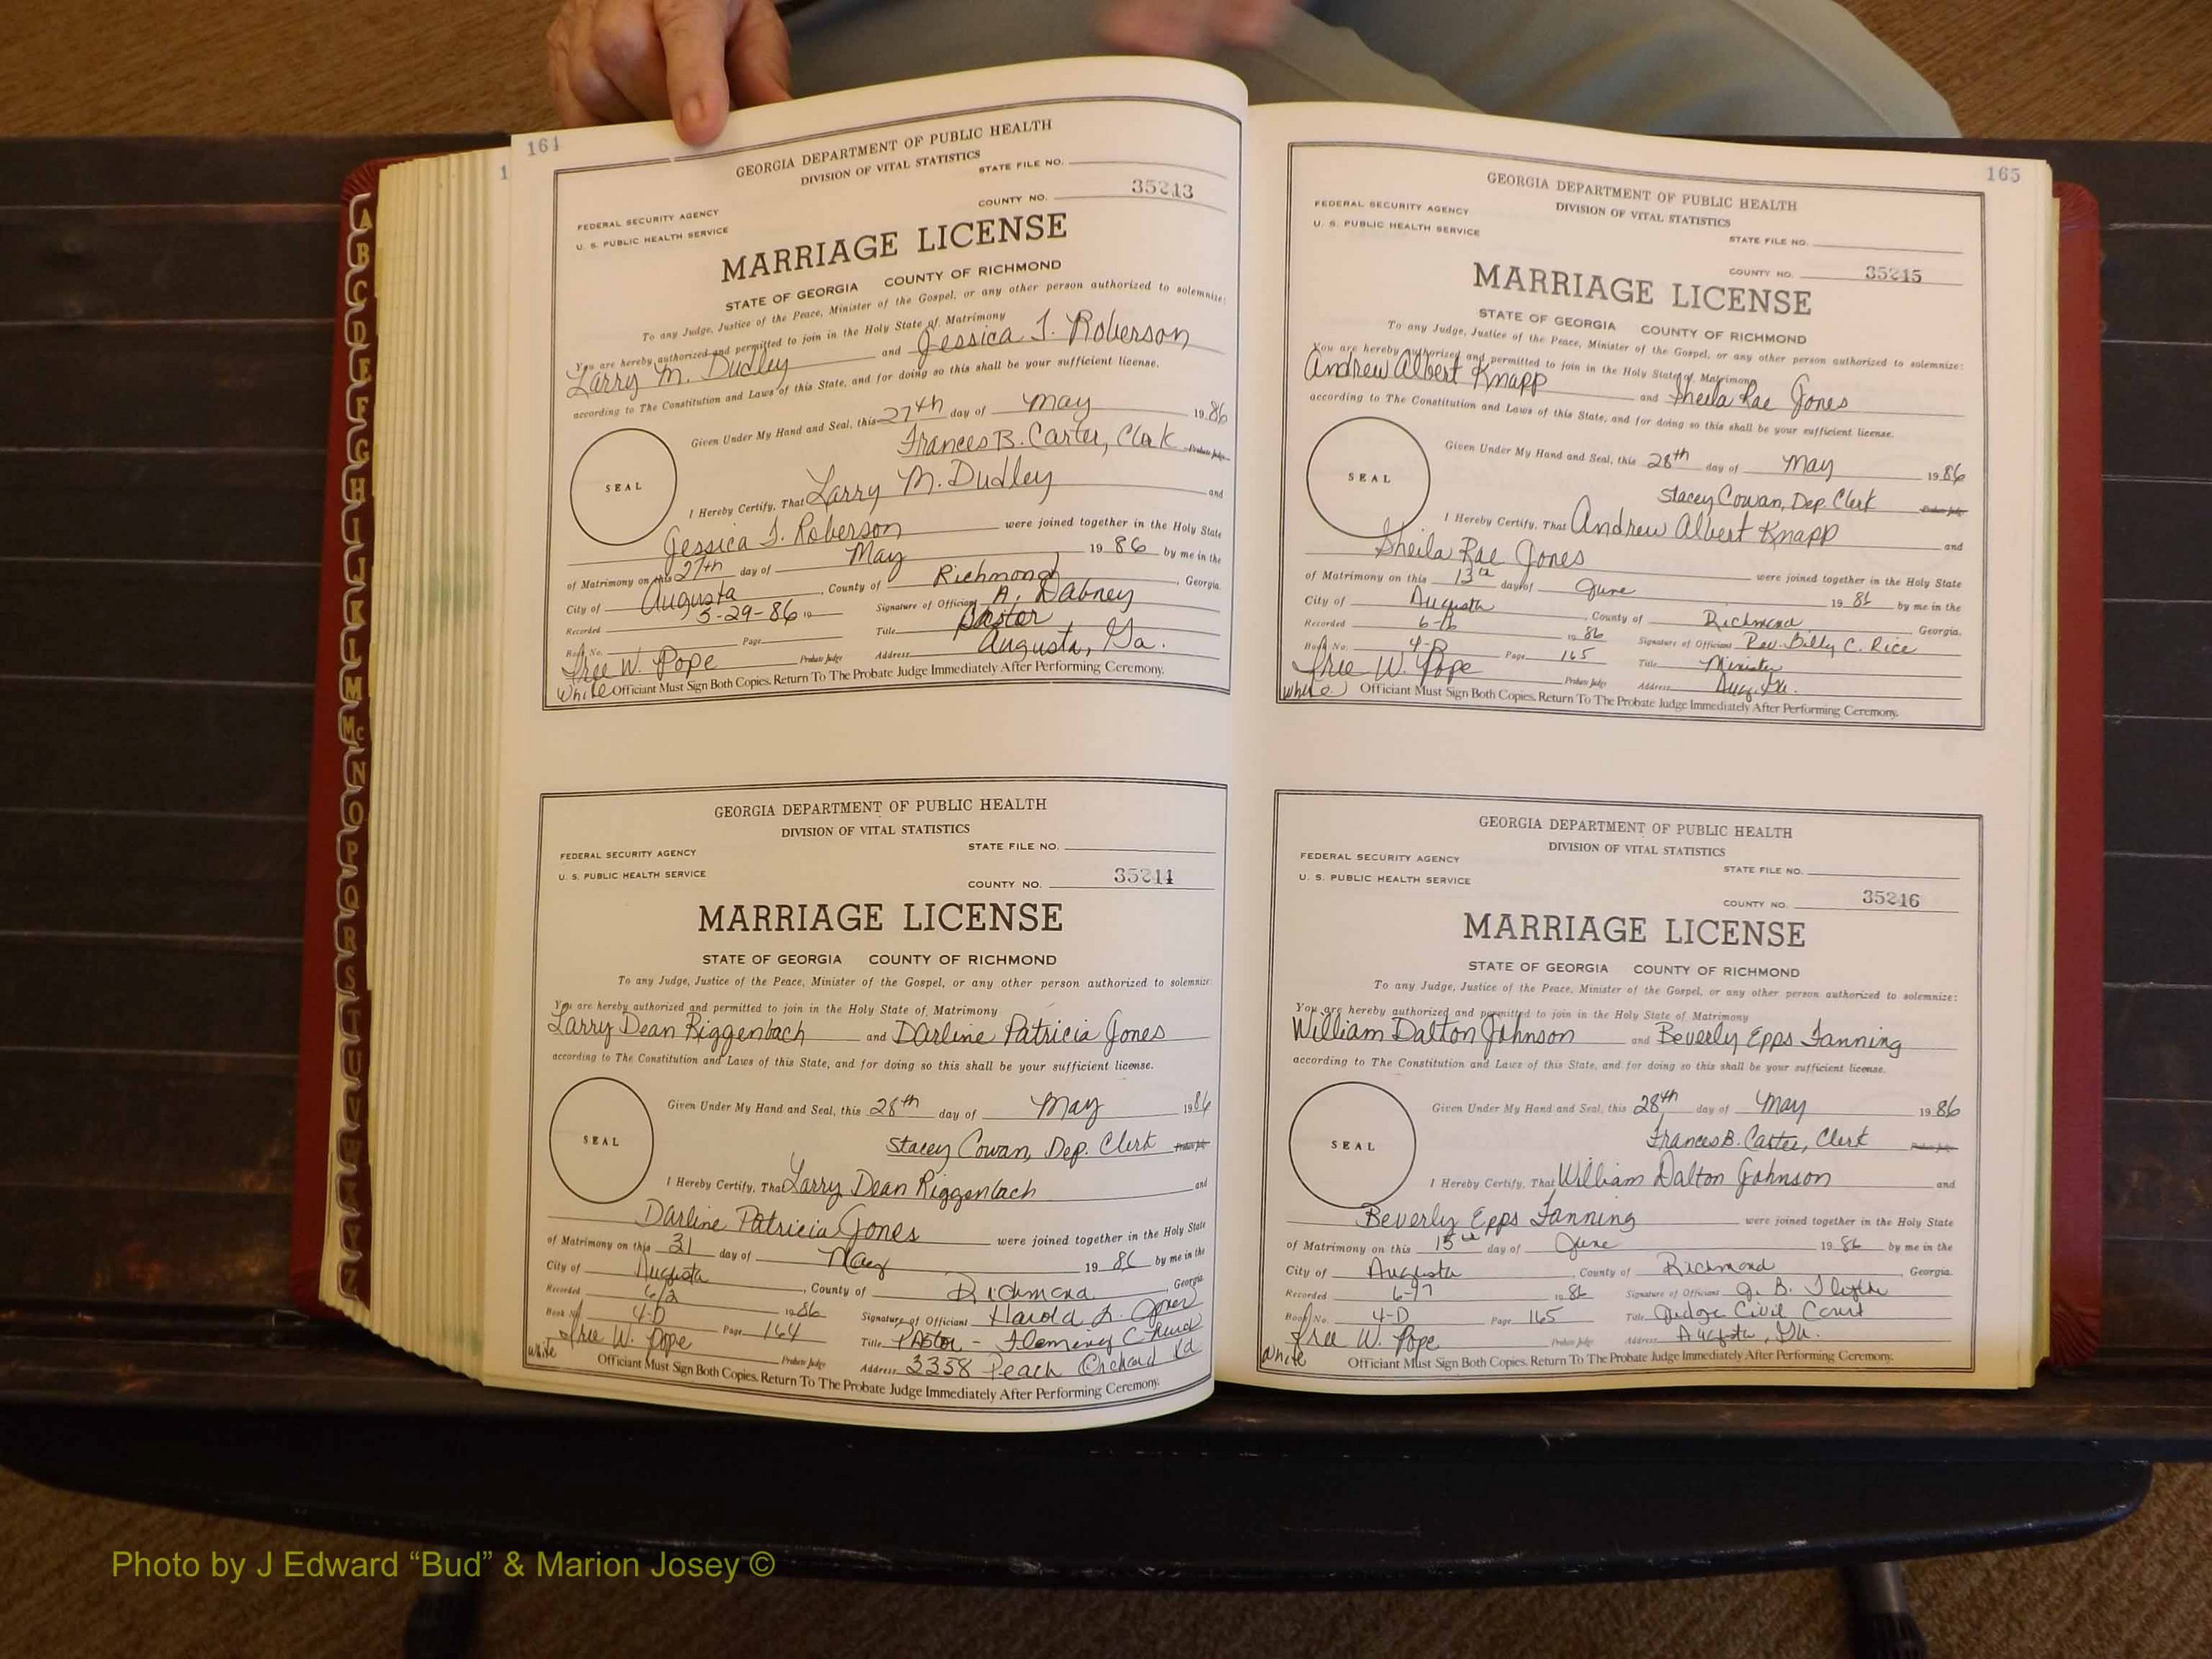 164
GEORGIA DEPARTMENT OF PUBLIC HEALTH
DIVISION OF VITAL STATISTICS
STATE FILE NO.
COUNTY NO. 35213
FEDERAL SECURITY AGENCY
U. S. PUBLIC HEALTH SERVICE
MARRIAGE LICENSE
STATE OF GEORGIA COUNTY OF RICHMOND
To any Judge, Justice of the Peace, Minister of the Gospel, or any other person authorized to solemnize:
You are hereby authorized and permitted to join in the Holy State of Matrimony
Larry M. Dudley and Jessica J. Roberson
according to The Constitution and Laws of this State, and for doing so this shall be your sufficient license.
Given Under My Hand and Seal, this 27th day of May 1986
Frances B. Carter, Clerk Probate Judge
SEAL
I Hereby Certify, That Larry M. Dudley and
Jessica J. Roberson were joined together in the Holy State
of Matrimony on this 27th day of May 1986 by me in the
City of Augusta, County of Richmond, Georgia.
Recorded 5-29-86 19 Signature of Official A. Dabney
Book No. Page Title Pastor
Free W. Pope Probate Judge Address Augusta, Ga.
White Officiant Must Sign Both Copies. Return To The Probate Judge Immediately After Performing Ceremony.
GEORGIA DEPARTMENT OF PUBLIC HEALTH
DIVISION OF VITAL STATISTICS
STATE FILE NO.
FEDERAL SECURITY AGENCY
U. S. PUBLIC HEALTH SERVICE
COUNTY NO. 35214
MARRIAGE LICENSE
STATE OF GEORGIA COUNTY OF RICHMOND
To any Judge, Justice of the Peace, Minister of the Gospel, or any other person authorized to solemnize:
You are hereby authorized and permitted to join in the Holy State of Matrimony
Larry Dean Riggenbach and Darline Patricia Jones
according to The Constitution and Laws of this State, and for doing so this shall be your sufficient license.
Given Under My Hand and Seal, this 28th day of May 1986
Stacey Cowan, Dep. Clerk Probate Judge
SEAL
I Hereby Certify, That Larry Dean Riggenbach and
Darline Patricia Jones were joined together in the Holy State
of Matrimony on this 31 day of May 1986 by me in the
City of Augusta, County of Richmond, Georgia.
Recorded 6/2 1986 Signature of Official Harold L. Jones
Book No. 4-D Page 164 Title Pastor - Fleming
Free W. Pope Probate Judge Address 3358 Peach Orchard Rd
White Officiant Must Sign Both Copies. Return To The Probate Judge Immediately After Performing Ceremony.
165
GEORGIA DEPARTMENT OF PUBLIC HEALTH
DIVISION OF VITAL STATISTICS
FEDERAL SECURITY AGENCY
U. S. PUBLIC HEALTH SERVICE
STATE FILE NO.
COUNTY NO. 35215
MARRIAGE LICENSE
STATE OF GEORGIA COUNTY OF RICHMOND
To any Judge, Justice of the Peace, Minister of the Gospel, or any other person authorized to solemnize:
You are hereby authorized and permitted to join in the Holy State of Matrimony
Andrew Albert Knapp and Sheila Rae Jones
according to The Constitution and Laws of this State, and for doing so this shall be your sufficient license.
Given Under My Hand and Seal, this 28th day of May 1986
Stacey Cowan, Dep. Clerk Probate Judge
SEAL
I Hereby Certify, That Andrew Albert Knapp and
Sheila Rae Jones were joined together in the Holy State
of Matrimony on this 13th day of June 1986 by me in the
City of Augusta, County of Richmond, Georgia.
Recorded 6-16 1986 Signature of Official Rev. Billy C. Rice
Book No. 4-D Page 165 Title Minister
Free W. Pope Probate Judge Address Aug. Ga.
White Officiant Must Sign Both Copies. Return To The Probate Judge Immediately After Performing Ceremony.
GEORGIA DEPARTMENT OF PUBLIC HEALTH
DIVISION OF VITAL STATISTICS
FEDERAL SECURITY AGENCY
U. S. PUBLIC HEALTH SERVICE
STATE FILE NO.
COUNTY NO. 35216
MARRIAGE LICENSE
STATE OF GEORGIA COUNTY OF RICHMOND
To any Judge, Justice of the Peace, Minister of the Gospel, or any other person authorized to solemnize:
You are hereby authorized and permitted to join in the Holy State of Matrimony
William Dalton Johnson and Beverly Epps Fanning
according to The Constitution and Laws of this State, and for doing so this shall be your sufficient license.
Given Under My Hand and Seal, this 28th day of May 1986
Frances B. Carter, Clerk Probate Judge
SEAL
I Hereby Certify, That William Dalton Johnson and
Beverly Epps Fanning were joined together in the Holy State
of Matrimony on this 15th day of June 1986 by me in the
City of Augusta, County of Richmond, Georgia.
Recorded 6-17 1986 Signature of Official J. B.
Book No. 4-D Page 165 Title Judge Civil Court
Free W. Pope Probate Judge Address Augusta, Ga.
White Officiant Must Sign Both Copies. Return To The Probate Judge Immediately After Performing Ceremony.
A
B
C
D
E
F
G
H
I
J
K
L
M
Mc
N
O
P
Q
R
S
T
U
V
Photo by J Edward “Bud” & Marion Josey ©